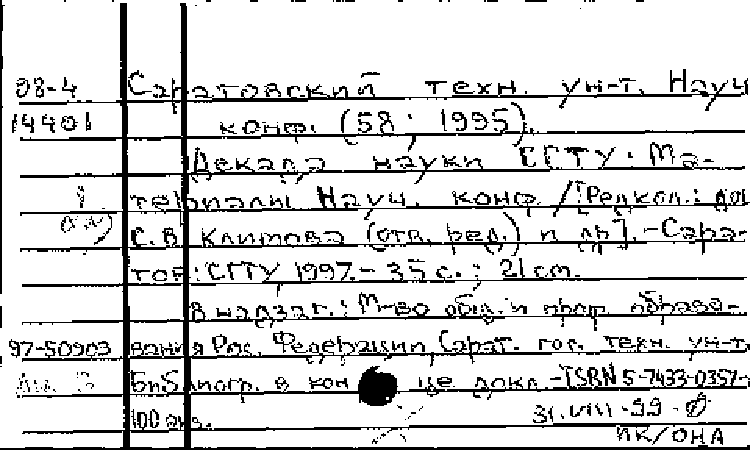 08-4 Саратовский техн. ун-т. Науч
14401 конф. (58; 1995).
Декада науки СГТУ. Ма-
териалы Науч. конф. /[Редкол.:
С.В. Климова (отв. ред.) и др]. -Сара-
тов: СГТУ, 1997.- 35 с.; 21 см.
В надзаг.: М-во общ. и проф. образо-
97-50903 вания Рос. Федерации, Сарат. гос. техн. ун-т.
Библиогр. в конце докл. -ISBN 5-7433-0357-
100 экз. 31.VIII-99-
ПК/ОНА